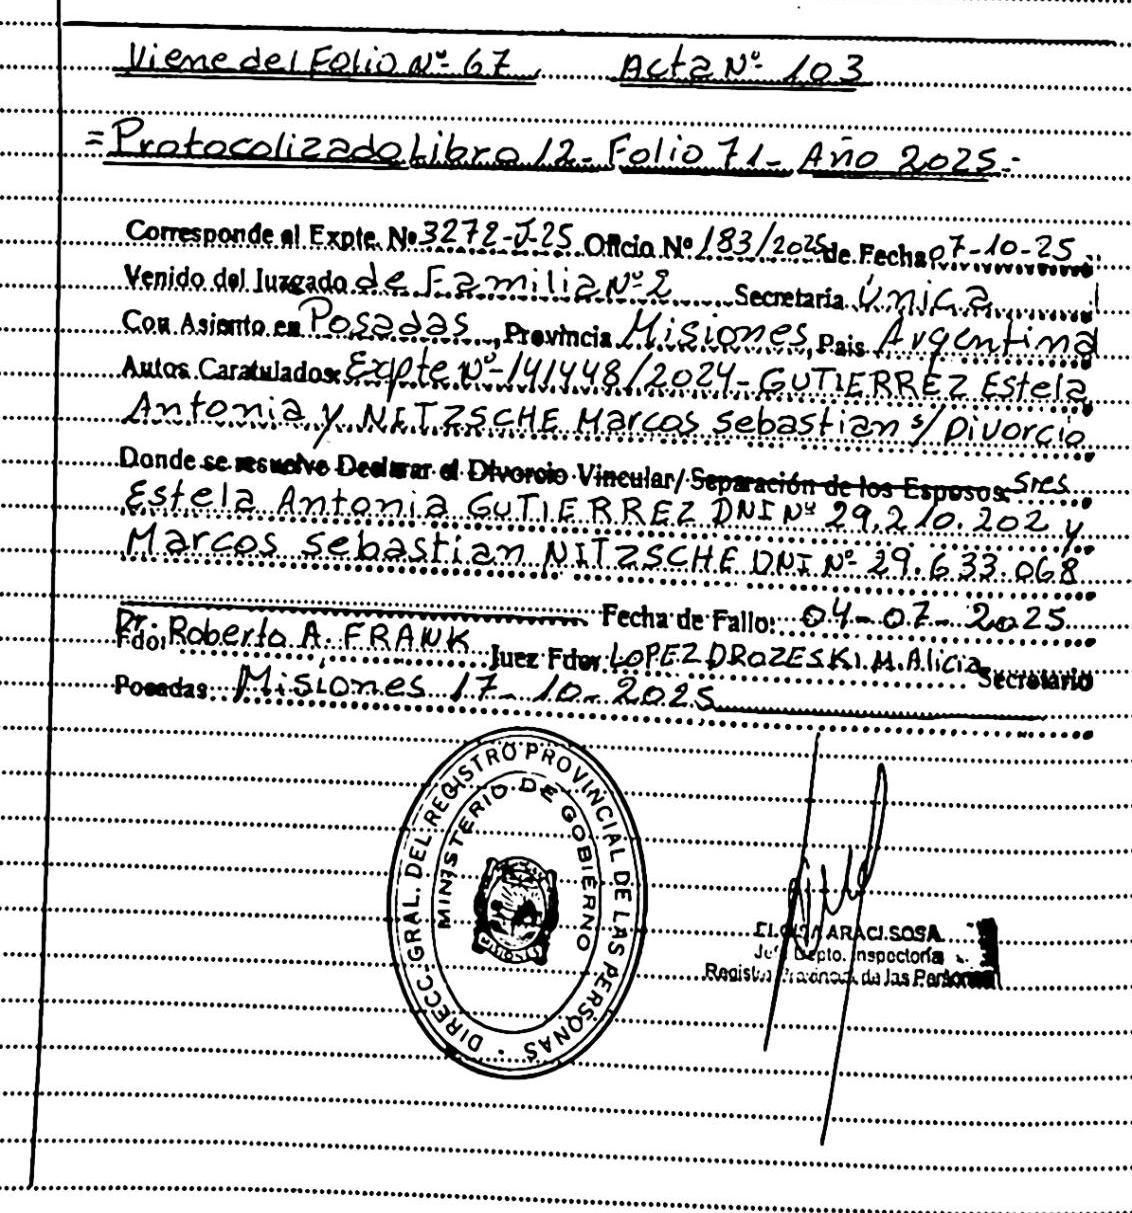 Viene del Folio Nº 67 Acta Nº 103
= Protocolizado Libro 12 - Folio 71 - Año 2025 -
Corresponde al Expte. Nº 3272-J-25 Oficio Nº 183/2025 de Fecha 07-10-25
Venido del Juzgado de Familia Nº 2 Secretaría Única
Con Asiento en Posadas, Provincia Misiones, Pais Argentina
Autos Caratulados: Expte Nº 141448/2024 - GUTIERREZ Estela
Antonia y NITZSCHE Marcos Sebastian s/ Divorcio
Donde se resuelve Declarar el Divorcio Vincular/ Separación de los Esposos: Sres
Estela Antonia GUTIERREZ DNI Nº 29.210.202 y
Marcos Sebastian NITZSCHE DNI Nº 29.633.068
Fecha de Fallo: 04-07-2025
Fdo: Dr. Roberto A. FRANK Juez Fdo: LOPEZ DROZESKI M. Alicia Secretario
Posadas: Misiones 17-10-2025
DIRECC. GRAL. DEL REGISTRO PROVINCIAL DE LAS PERSONAS
MINISTERIO DE GOBIERNO
MISIONES
ARACI SOSA
Dpto. Inspectoría
de las Personas